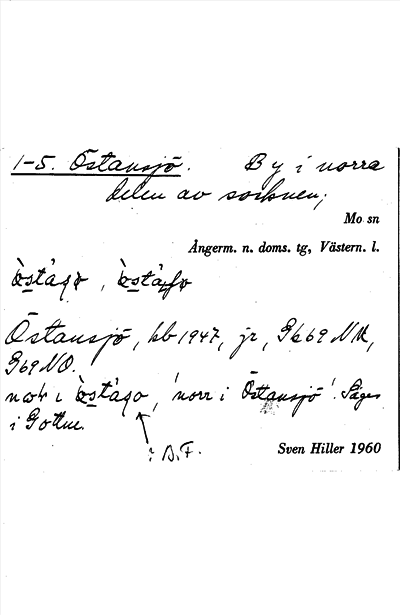 1-5. Östansjö. By i norra
delen av socknen;
Mo sn
Ångerm. n. doms. tg, Västern. l.
Östansjö, kb 1947, jr, Gk 69 NV,
G69 NO.
norr i Östansjö. Säges
i Gottne.
i D.F.
Sven Hiller 1960